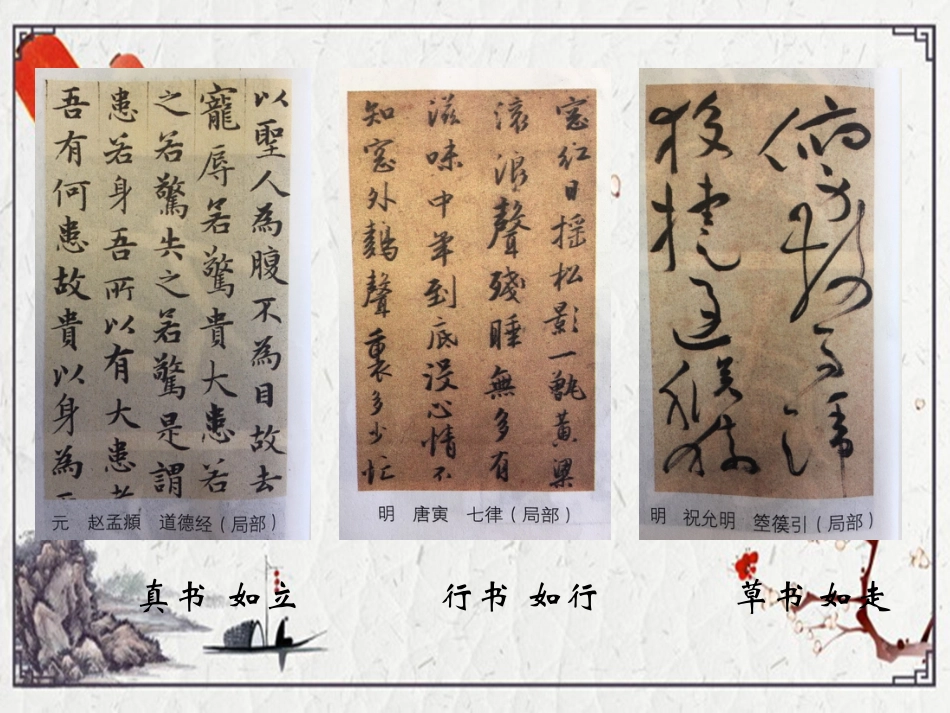 以聖人為腹不為目故去
寵辱若驚貴大患若
之若驚失之若驚是謂
患若身吾所以有大患者
吾有何患故貴以身為
元 赵孟頫 道德经（局部）
窓红日摇松影一甑黄粱
滚浪聲殘睡無多有
滋味中年到底没心情不
知窓外鷄聲裏多少忙
明 唐寅 七律（局部）
明 祝允明 箜篌引（局部）
真书 如立
行书 如行
草书 如走